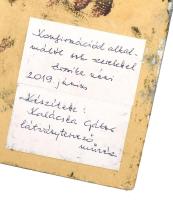 Konfirmációd alkal-
mából sok szeretettel
néni
2019. június
Készítette:
Kalácska Gábor
látványtervező
művész